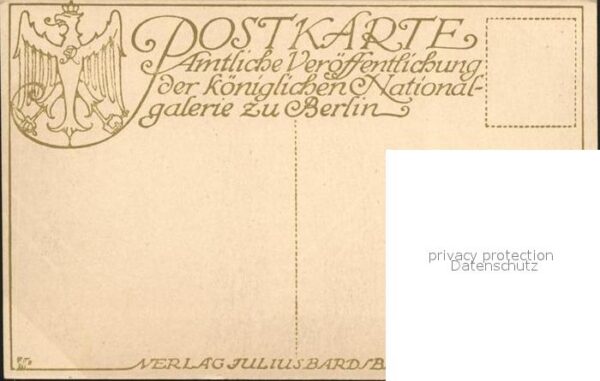 POSTKARTE
Amtliche Veröffentlichung
der königlichen National-
galerie zu Berlin
privacy protection
Datenschutz
VERLAG JULIUS BARD/B